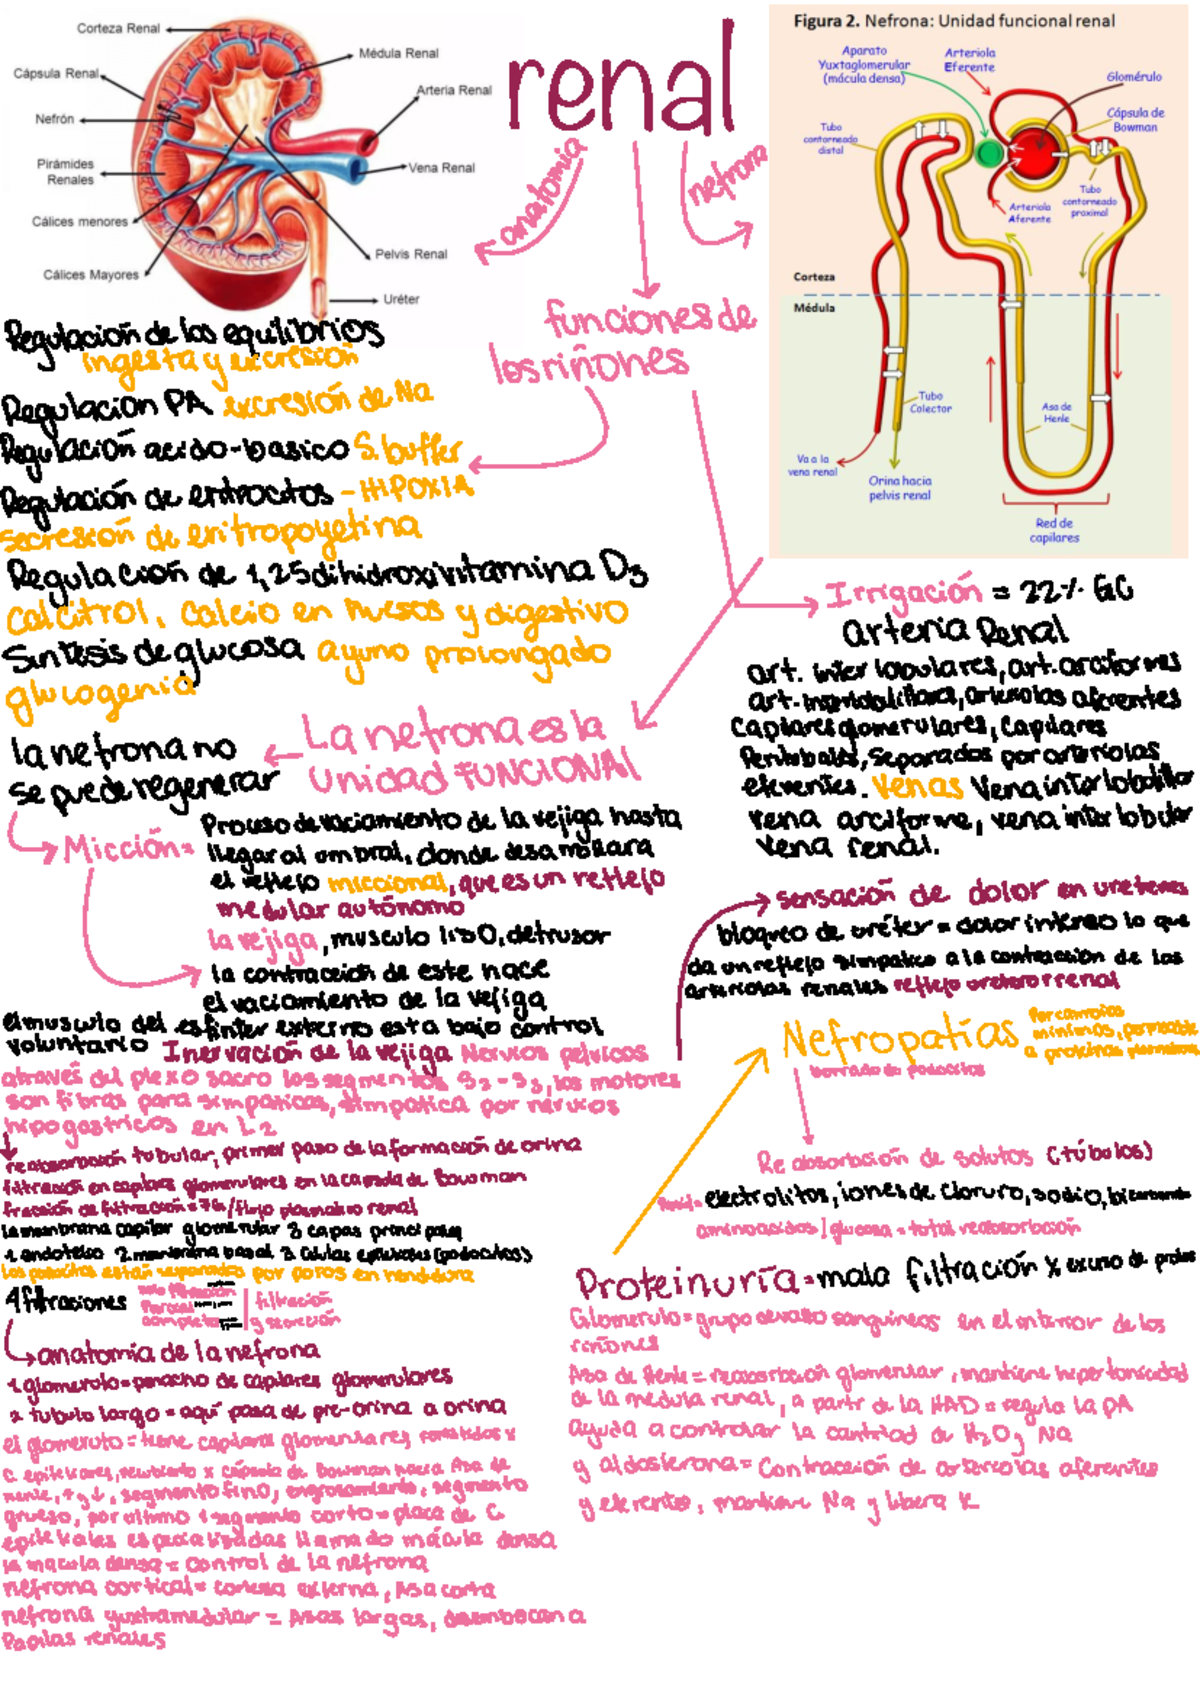 Corteza Renal
Cápsula Renal
Nefrón
Pirámides
Renales
Cálices menores
Cálices Mayores
Médula Renal
Arteria Renal
Vena Renal
Pelvis Renal
Uréter
renal
anatomia
nefrona
Figura 2. Nefrona: Unidad funcional renal
Aparato
Yuxtaglomerular
(mácula densa)
Arteriola
Eferente
Glomérulo
Cápsula de
Bowman
Tubo
contorneado
distal
Tubo
contorneado
proximal
Arteriola
Aferente
Corteza
Médula
Tubo
Colector
Asa de
Henle
Va a la
vena renal
Orina hacia
pelvis renal
Red de
capilares
funciones de
los riñones
Regulación de los equilibrios
ingesta y excresión
Regulacion PA excresión de Na
Regulación acido-basico S. buffer
Regulación de eritrocitos - HIPOXIA
secresión de eritropoyetina
Regulación de 1,25 dihidroxivitamina D3
calcitrol, calcio en huesos y digestivo
Sintesis de glucosa ayuno prolongado
glucogenia
La nefrona es la
Unidad FUNCIONAL
la nefrona no
se puede regenerar
Irrigación = 22% GC
arteria Renal
art. inter lobulares, art. arciformes
art. , arteriolas aferentes
Capilares glomerulares, capilares
, separados por arteriolas
eferentes. Venas Vena interlobulillar
vena arciforme, vena interlobular
vena renal.
Micción= Proceso de vaciamiento de la vejiga hasta
llegar al umbral, donde desarrollara
el reflejo miccional, que es un reflejo
medular autónomo
la vejiga, musculo liso, detrusor
la contraccion de este hace
el vaciamiento de la vejiga
el musculo del esfinter externo esta bajo control
voluntario Inervación de la vejiga Nervios pelvicos
através del plexo sacro los segmentos S2-S3, los motores
son fibras para simpaticas, simpatica por nervios
hipogastricos en L2
sensación de dolor en ureteres
bloqueo de uréter = dolor intenso lo que
da un reflejo simpatico a la contraccion de las
arteriolas renales reflejo ureterorrenal
Nefropatías Por cambios
minimos, permeable
a proteinas plasmaticas
borrado de podocitos
Reabsorción de solutos (túbulos)
electrolitos, iones de cloruro, sodio, bicarbonato
aminoacidos / glucosa = total reabsorción
reabsorción tubular, primer paso de la formación de orina
filtración en capilares glomerulares en la capsula de Bowman
fracción de filtración = /flujo plasmatico renal
la membrana capilar glomerular 3 capas principales
1 endotelio 2 membrana basal 3 celulas epiteliales (podocitos)
los podocitos están separados por poros en hendidura
4 filtraciones solo filtración
Parcial
completa
filtración
y secreción
anatomía de la nefrona
1 glomerulo = penacho de capilares glomerulares
2 tubulo largo = aquí pasa de pre-orina a orina
el glomerulo = tiene capilares glomerulares, x
C. epiteliares, x cápsula de Bowman hacia Asa de
Henle, ↑ y ↓, segmento fino, engrosamiento, segmento
grueso, por ultimo 1 segmento corto = placa de C.
epiteliales especializadas llamado mácula densa
la macula densa = control de la nefrona
nefrona cortical = corteza externa, Asa corta
nefrona yuxtamedular = Asas largas, desembocan a
Papilas renales
Proteinuria = mala filtración x exceso de
Glomerulo = grupo de vasos sanguineos en el interior de los
riñones
Asa de Henle = reabsorción glomerular, mantiene hipertonicidad
de la medula renal, a partir de la HAD = regula la PA
ayuda a controlar la cantidad de H2O y Na
y aldosterona = Contracción de arteriolas aferentes
y eferentes, mantiene Na y libera K